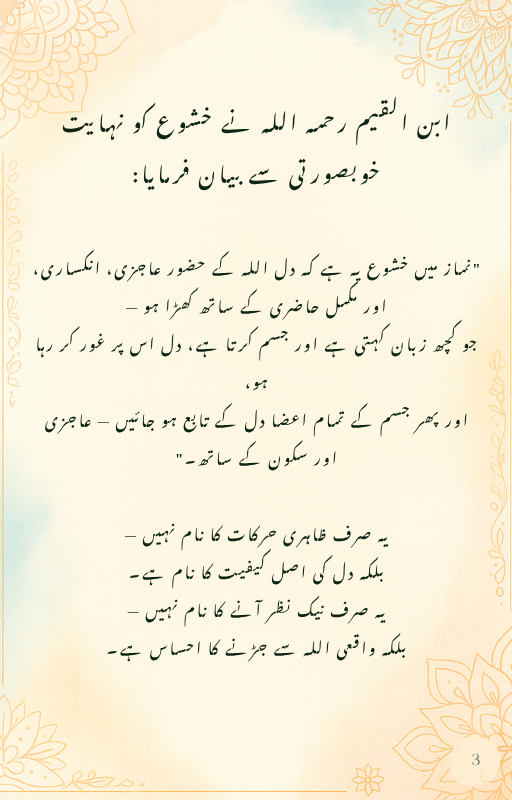 ابن القیم رحمہ اللہ نے خشوع کو نہایت
خوبصورتی سے بیان فرمایا:
"نماز میں خشوع یہ ہے کہ دل اللہ کے حضور عاجزی، انکساری،
اور مکمل حاضری کے ساتھ کھڑا ہو –
جو کچھ زبان کہتی ہے اور جسم کرتا ہے، دل اس پر غور کر رہا
ہو،
اور پھر جسم کے تمام اعضا دل کے تابع ہو جائیں – عاجزی
اور سکون کے ساتھ۔"
یہ صرف ظاہری حرکات کا نام نہیں –
بلکہ دل کی اصل کیفیت کا نام ہے۔
یہ صرف نیک نظر آنے کا نام نہیں –
بلکہ واقعی اللہ سے جڑنے کا احساس ہے۔
3